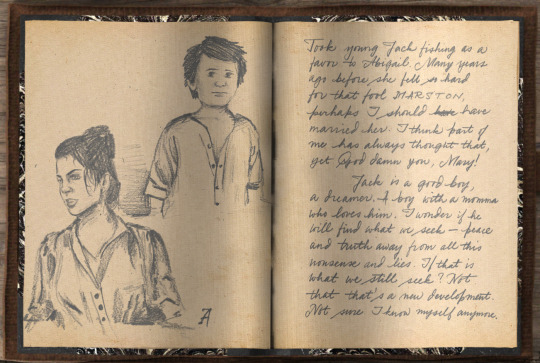 Took young Jack fishing as a
favor to Abigail. Many years
ago before she fell so hard
for that fool MARSTON,
perhaps I should have have
married her. I think part of
me has always thought that,
yet God damn you, Mary!
Jack is a good boy,
a dreamer. A boy with a momma
who loves him. I wonder if he
will find what we seek — peace
and truth away from all this
nonsense and lies. If that is
what we still seek? Not
that that's a new development.
Not sure I know myself anymore.
A